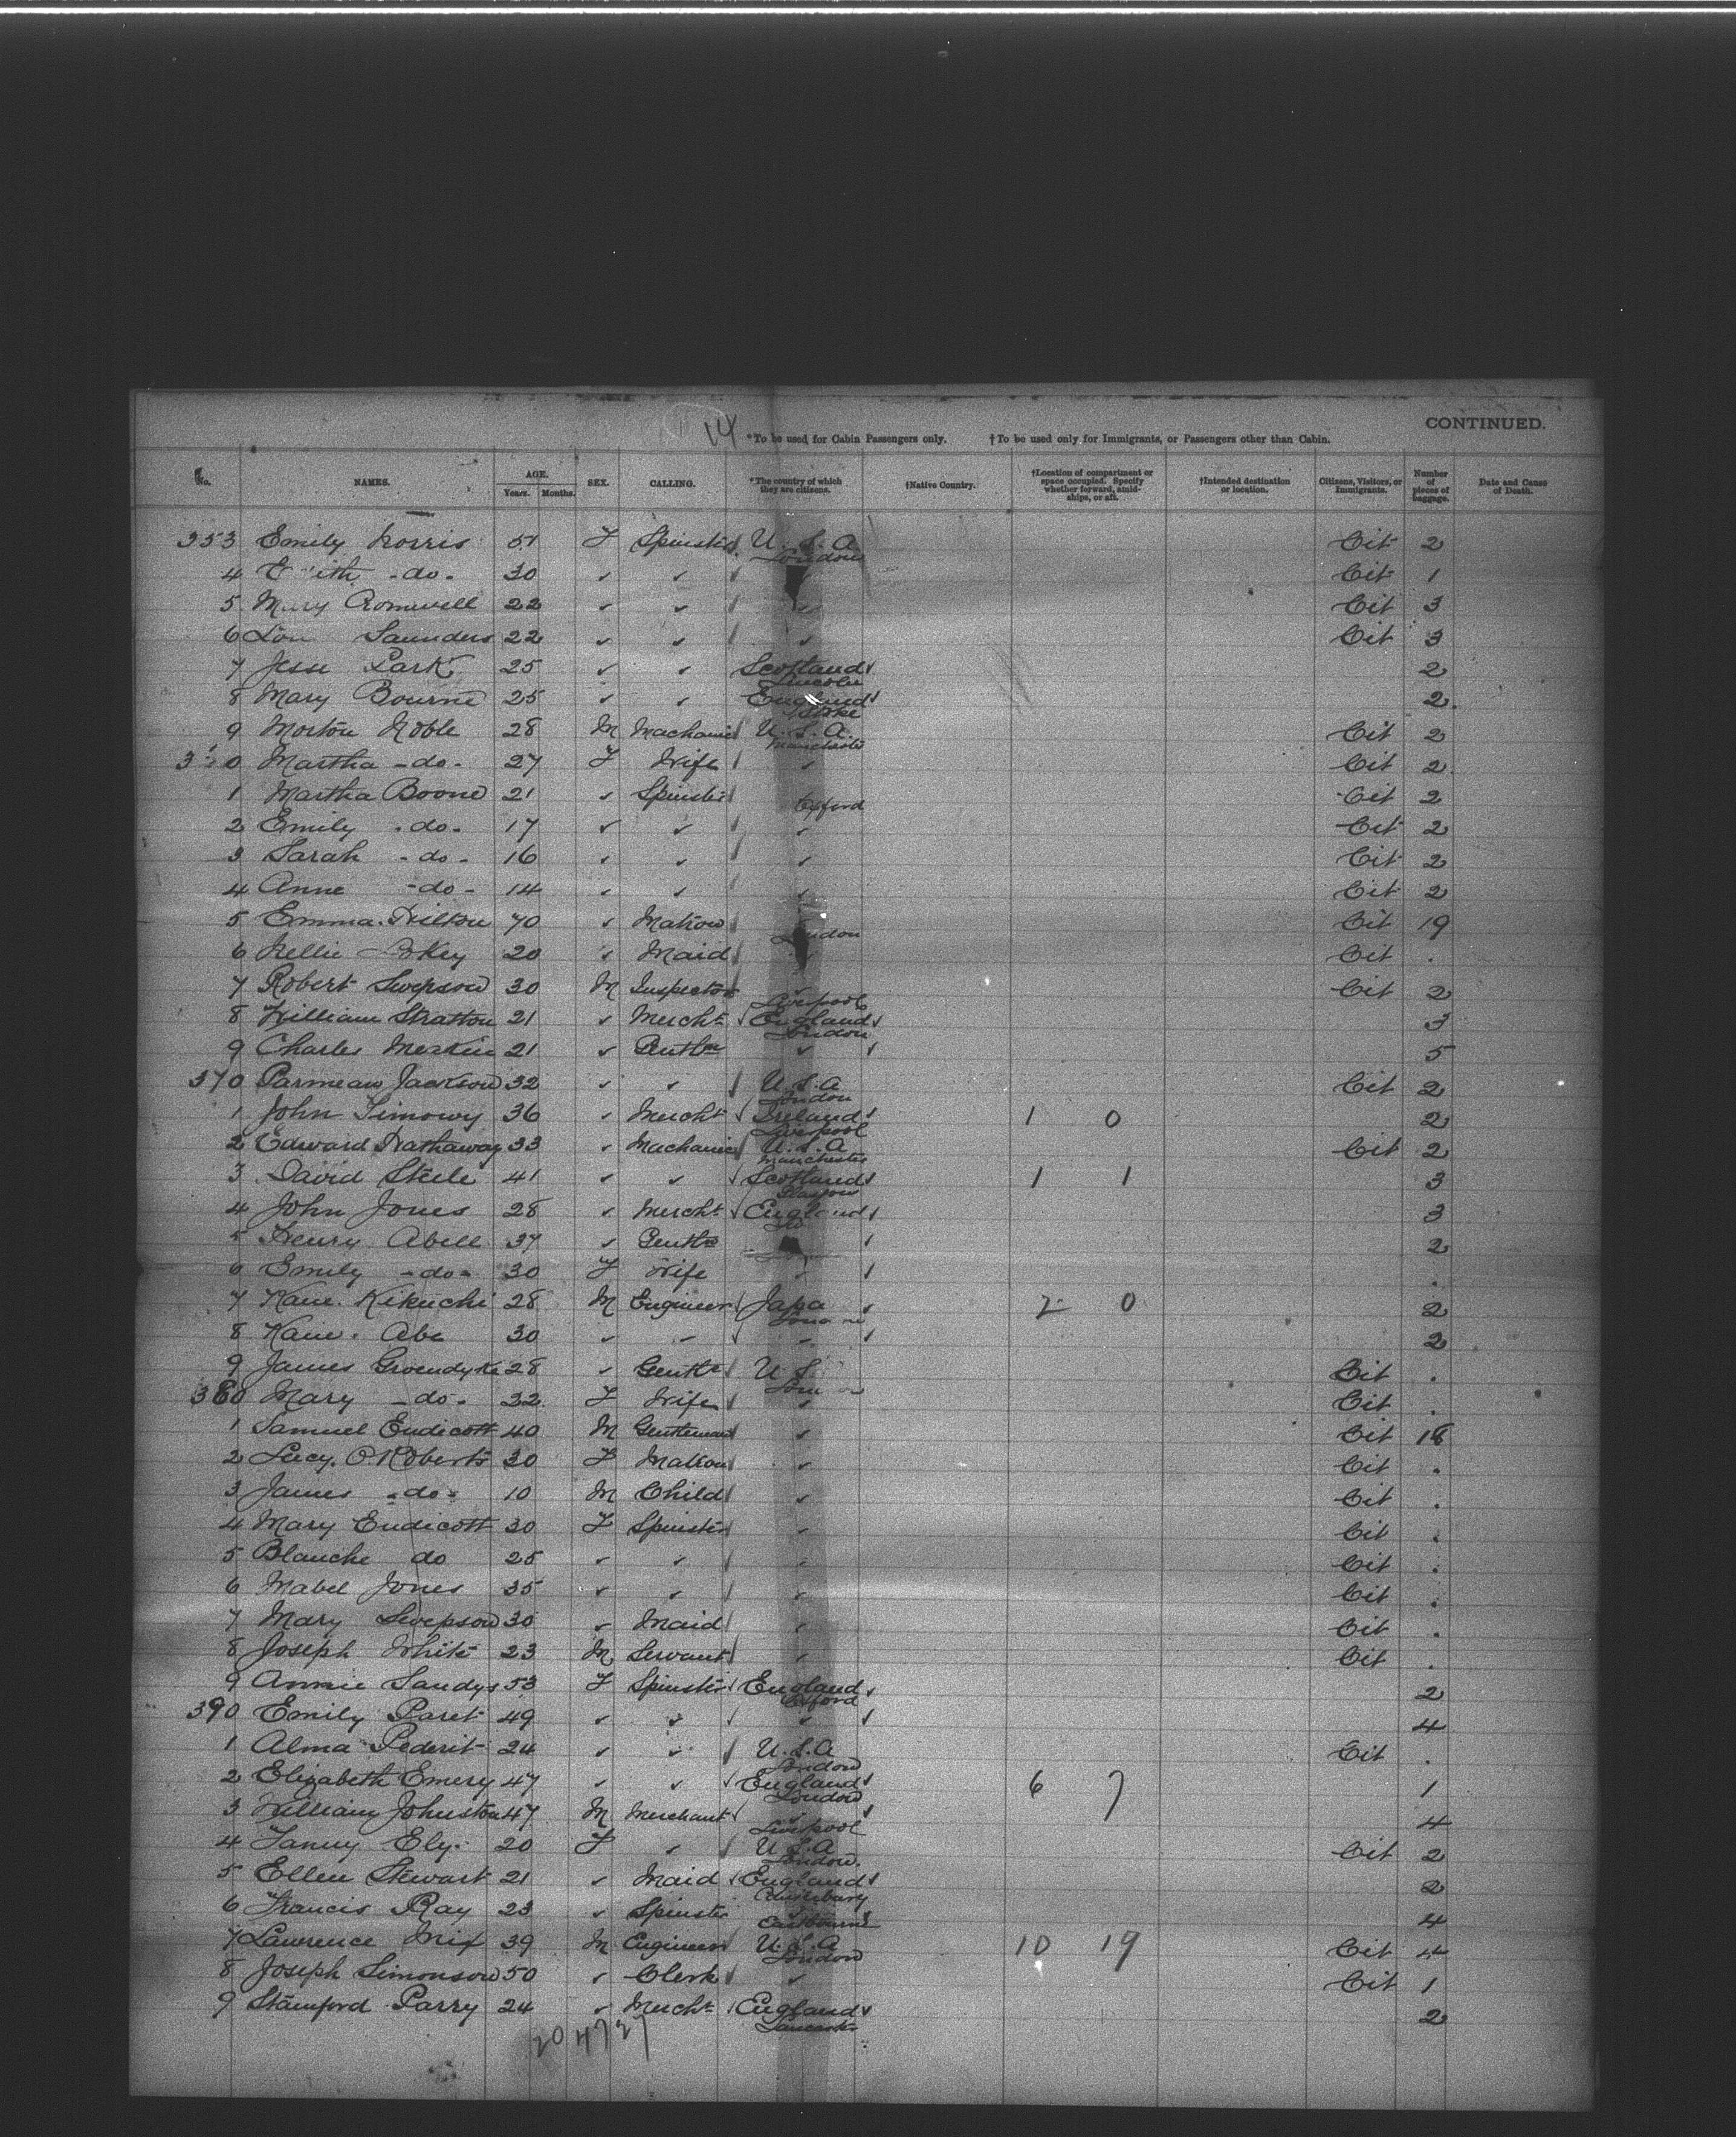 14
CONTINUED.
*To be used for Cabin Passengers only. †To be used only for Immigrants, or Passengers other than Cabin.
No. NAMES. AGE. Years. Months. SEX. CALLING. *The country of which they are citizens. †Native Country. †Location of compartment or space occupied. Specify whether forward, amidships, or aft. †Intended destination or location. Citizens, Visitors, or Immigrants. Number of pieces of baggage. Date and Cause of Death.
353 Emily Norris 51 F Spinster U.S.A London Cit 2
4 -do- 30 ✓ ✓ Cit 1
5 Mary 22 ✓ ✓ ✓ Cit 3
6 Saunders 22 ✓ ✓ ✓ Cit 3
7 Jesse Park 25 ✓ ✓ Scotland 2
Lincoln
8 Mary Bourne 25 ✓ ✓ England 2
9 Morton Noble 28 M Machanic U.S.A. Cit 2
Manchester
0 Martha -do- 27 F Wife ✓ Cit 2
1 Martha Boone 21 ✓ Spinster Oxford Cit 2
2 Emily -do- 17 ✓ ✓ ✓ Cit 2
3 Sarah -do- 16 ✓ ✓ ✓ Cit 2
4 Anne -do- 14 ✓ ✓ ✓ Cit 2
5 Emma 70 ✓ Matron Cit 19
6 Nellie 20 ✓ Maid Cit .
7 Robert 30 M Inspector ✓ Cit 2
Liverpool
8 William Stratton 21 ✓ Mercht England 3
London
9 Charles 21 ✓ Gentln ✓ 5
370 Jackson 32 ✓ ✓ U.S.A Cit 2
London
1 John 36 ✓ Mercht Ireland 1 0 2
Liverpool
2 Edward Hathaway 33 ✓ Machanic U.S.A Cit 2
Manchester
3 David Steele 41 ✓ ✓ Scotland 1 1 3
Glasgow
4 John Jones 28 ✓ Mercht England 3
5 Henry Abell 37 ✓ 2
6 Emily -do- 30 F Wife .
7 Kane. Kikuchi 28 M Engineer Japa 2 0 2
8 Abe 30 ✓ ✓ 2
9 James Groendyke 28 ✓ U.S. Cit .
380 Mary -do- 32 F Wife ✓ Cit .
1 Samuel Endicott 40 M Gentleman ✓ Cit 18
2 Lucy. O. Roberts 30 F Matron ✓ Cit .
3 James -do- 10 M Child ✓ Cit .
4 Mary Endicott 30 F Spinster ✓ Cit .
5 Blanche do 25 ✓ ✓ ✓ Cit .
6 Mabel Jones 35 ✓ ✓ ✓ Cit .
7 Mary 30 ✓ Maid ✓ Cit .
8 Joseph White 23 M Servant ✓ Cit .
9 Annie Sandys 53 F Spinster England 2
Oxford
390 Emily Paret 49 ✓ ✓ ✓ 4
1 Alma Pederit 24 ✓ ✓ U.S.A Cit .
London
2 Elizabeth Emery 47 ✓ ✓ England 6 7 1
London
3 William Johnston 47 M Merchant ✓ 4
Liverpool
4 Fanny Ely. 20 F ✓ U.S.A Cit 2
London.
5 Ellen Stewart 21 ✓ Maid England 2
6 Francis Ray 23 ✓ Spinster 4
Eastbourne
7 Lawrence Mix 39 M Engineer U.S.A 10 19 Cit 4
London
8 Joseph Simonson 50 ✓ Clerk ✓ Cit 1
9 Stamford Parry 24 ✓ Mercht England 2
Lancaster
20 47 27